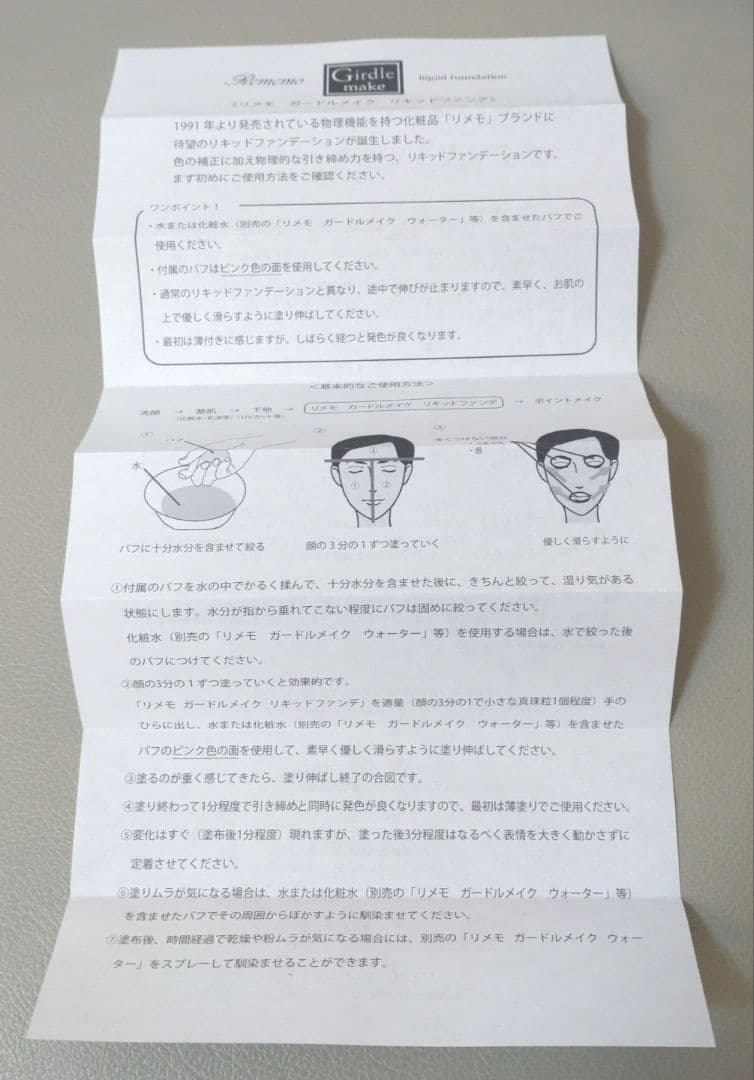 Rememo Girdle make liquid foundation
《リメモ ガードルメイク リキッドファンデ》
1991年より発売されている物理機能を持つ化粧品「リメモ」ブランドに
待望のリキッドファンデーションが誕生しました。
色の補正に加え物理的な引き締め力を持つ、リキッドファンデーションです。
まず初めにご使用方法をご確認ください。
ワンポイント！
・水または化粧水（別売の「リメモ ガードルメイク ウォーター」等）を含ませたパフでご
使用ください。
・付属のパフはピンク色の面を使用してください。
・通常のリキッドファンデーションと異なり、途中で伸びが止まりますので、素早く、お肌の
上で優しく滑らすように塗り伸ばしてください。
・最初は薄付きに感じますが、しばらく経つと発色が良くなります。
＜基本的なご使用方法＞
洗顔 → 整肌 → 下地 → リメモ ガードルメイク リキッドファンデ → ポイントメイク
（化粧水・乳液等）（UVカット等）
① パフ
水
②
①
① ②
③
・唇
パフに十分水分を含ませて絞る
顔の３分の１ずつ塗っていく
優しく滑らすように
①付属のパフを水の中でかるく揉んで、十分水分を含ませた後に、きちんと絞って、湿り気がある
状態にします。水分が指から垂れてこない程度にパフは固めに絞ってください。
化粧水（別売の「リメモ ガードルメイク ウォーター」等）を使用する場合は、水で絞った後
のパフにつけてください。
②顔の3分の１ずつ塗っていくと効果的です。
「リメモ ガードルメイク リキッドファンデ」を適量（顔の3分の1で小さな真珠粒1個程度）手の
ひらに出し、水または化粧水（別売の「リメモ ガードルメイク ウォーター」等）を含ませた
パフのピンク色の面を使用して、素早く優しく滑らすように塗り伸ばしてください。
③塗るのが重く感じてきたら、塗り伸ばし終了の合図です。
④塗り終わって1分程度で引き締めと同時に発色が良くなりますので、最初は薄塗りでご使用ください。
⑤変化はすぐ（塗布後1分程度）現れますが、塗った後3分程度はなるべく表情を大きく動かさずに
定着させてください。
⑥塗りムラが気になる場合は、水または化粧水（別売の「リメモ ガードルメイク ウォーター」等）
を含ませたパフでその周囲からぼかすように馴染ませてください。
⑦塗布後、時間経過で乾燥や粉ムラが気になる場合には、別売の「リメモ ガードルメイク ウォー
ター」をスプレーして馴染ませることができます。